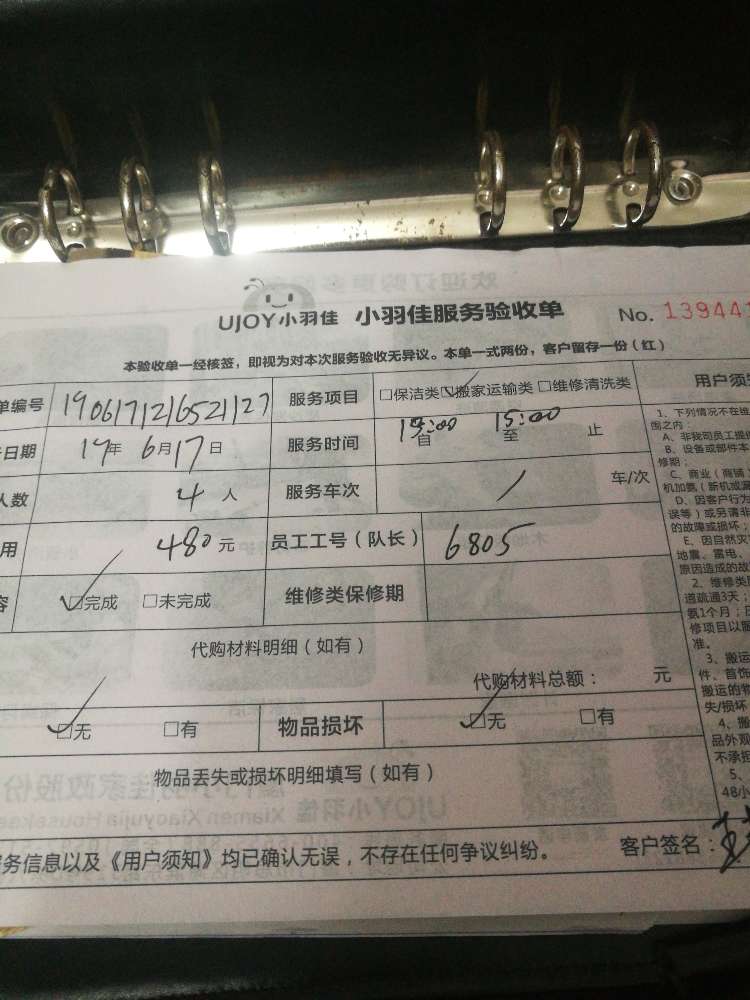 UJOY小羽佳 小羽佳服务验收单 No. 139441
本验收单一经核签，即视为对本次服务验收无异议。本单一式两份，客户留存一份（红）
单编号 1906171216521127 服务项目 □保洁类☑搬家运输类□维修清洗类 用户须知
日期 19年 6月17日 服务时间 自 至 15:00 止
人数 4人 服务车次 / 车/次
用 480元 员工工号（队长） 6805
容 ☑完成 □未完成 维修类保修期
代购材料明细（如有）
代购材料总额： 元
☑无 □有 物品损坏 ☑无 □有
物品丢失或损坏明细填写（如有）
务信息以及《用户须知》均已确认无误，不存在任何争议纠纷。 客户签名：
1、下列情况不在维
围之内：
A、非我司员工提
B、设备或部件本
修期；
C、商业（商铺
机加氨（新机或漏
D、因客户行为
误等）或另请非
的故障或损坏；
E、因自然灾
地震、雷电、
原因造成的故
2、维修类
道疏通3天；
氨1个月；
修项目以服
准。
3、搬运
件、首饰
搬运的物
失/损坏
4、搬
品外观
不承担
5、
48小